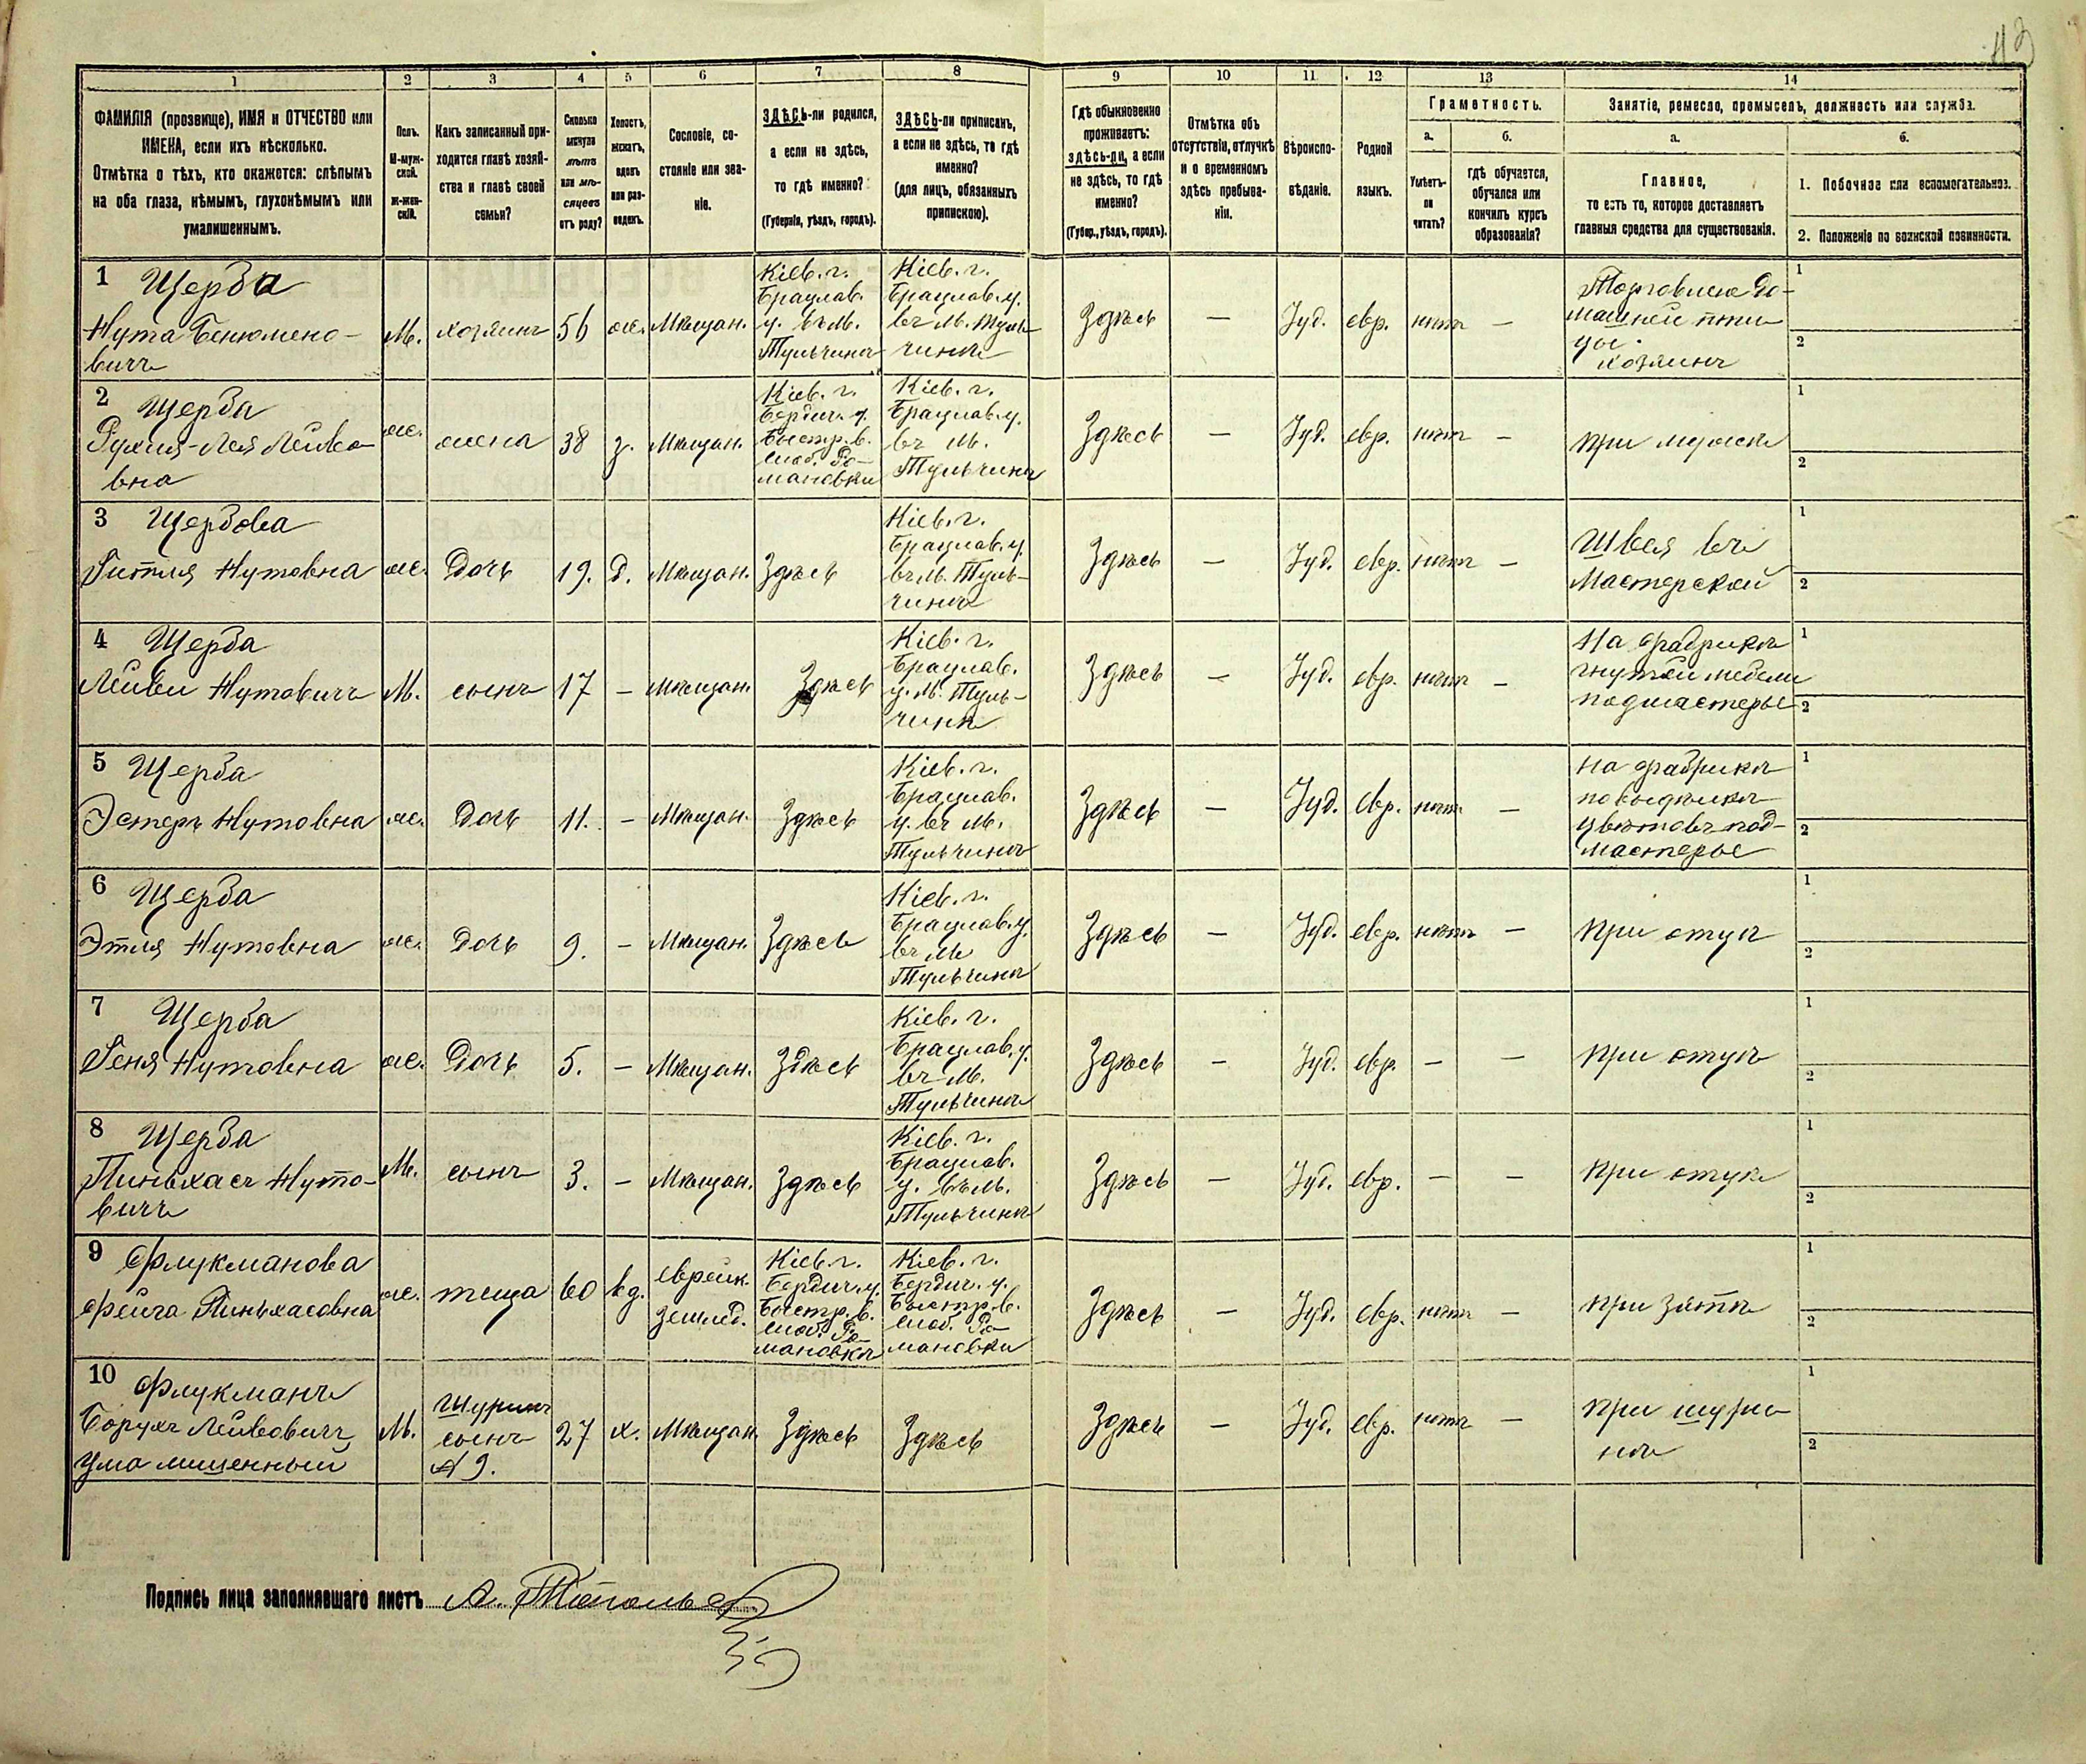 43
1 2 3 4 5 6 7 8 9 10 11 12 13 14
ФАМИЛІЯ (прозвище), ИМЯ и ОТЧЕСТВО или
ИМЕНА, если ихъ нѣсколько.
Отмѣтка о тѣхъ, кто окажется: слѣпымъ
на оба глаза, нѣмымъ, глухонѣмымъ или
умалишеннымъ.
Полъ.
М-муж-
ской.
Ж-жен-
скій.
Какъ записанный при-
ходится главѣ хозяй-
ства и главѣ своей
семьи?
Сколько
минуло
лѣтъ
или мѣ-
сяцевъ
отъ роду?
Холостъ,
женатъ,
вдовъ
или раз-
веденъ.
Сословіе, со-
стояніе или зва-
ніе.
ЗДѢСЬ-ли родился,
а если не здѣсь,
то гдѣ именно?
(Губернія, уѣздъ, городъ).
ЗДѢСЬ-ли приписанъ,
а если не здѣсь, то гдѣ
именно?
(для лицъ, обязанныхъ
припискою).
Гдѣ обыкновенно
проживаетъ:
здѣсь-ли, а если
не здѣсь, то гдѣ
именно?
(Губер., уѣздъ, городъ).
Отмѣтка объ
отсутствіи, отлучкѣ
и о временномъ
здѣсь пребыва-
ніи.
Вѣроиспо-
вѣданіе.
Родной
языкъ.
Грамотность.
а.
Умѣетъ-
ли
читать?
б.
гдѣ обучается,
обучался или
кончилъ курсъ
образованія?
Занятіе, ремесло, промыселъ, должность или служба.
а.
Главное,
то есть то, которое доставляетъ
главныя средства для существованія.
б.
1. Побочное или вспомогательное.
2. Положеніе по воинской повинности.
1 Щерба
Нута Бенюмено-
вичъ
М.
хозяинъ
56
ж.
Мѣщан.
Кіев. г.
Брацлав.
у. въ м.
Тульчинѣ
Кіев. г.
Брацлав. у.
въ м. Туль-
чинѣ
Здѣсь
—
Іуд.
евр.
нѣтъ
—
Торговлею до-
машней пти-
цы.
хозяинъ
1
2
2 Щерба
Рухля-Лея Лейбо-
вна
ж.
жена
38
з.
Мѣщан.
Кіев. г.
Бердич. у.
Быстр. в.
слоб. Ро-
мановки
Кіев. г.
Брацлав. у.
въ м.
Тульчинѣ
Здѣсь
—
Іуд.
евр.
нѣтъ
—
при мужѣ
1
2
3 Щербова
Гитля Нутовна
ж.
Дочь
19.
д.
Мѣщан.
Здѣсь
Кіев. г.
Брацлав. у.
въ м. Туль-
чинѣ
Здѣсь
—
Іуд.
евр.
нѣтъ
—
Швея въ
Мастерской
1
2
4 Щерба
Лейби Нутовичъ
М.
сынъ
17
—
Мѣщан.
Здѣсь
Кіев. г.
Брацлав.
у. м. Туль-
чинѣ
Здѣсь
—
Іуд.
евр.
нѣтъ
—
На фабрикѣ
гнутой мебели
подмастерье
1
2
5 Щерба
Эстеръ Нутовна
ж.
Дочь
11.
—
Мѣщан.
Здѣсь
Кіев. г.
Брацлав.
у. въ м.
Тульчинѣ
Здѣсь
—
Іуд.
евр.
нѣтъ
—
на фабрикѣ
по выдѣлкѣ
цвѣтовъ под-
мастерье
1
2
6 Щерба
Этля Нутовна
ж.
Дочь
9.
—
Мѣщан.
Здѣсь
Кіев. г.
Брацлав. у.
въ м.
Тульчинѣ
Здѣсь
—
Іуд.
евр.
нѣтъ
—
при отцѣ
1
2
7 Щерба
Геня Нутовна
ж.
Дочь
5.
—
Мѣщан.
Здѣсь
Кіев. г.
Брацлав. у.
въ м.
Тульчинѣ
Здѣсь
—
Іуд.
евр.
—
—
при отцѣ
1
2
8 Щерба
Пиньхасъ Нуто-
вичъ
М.
сынъ
3.
—
Мѣщан.
Здѣсь
Кіев. г.
Брацлав.
у. въ м.
Тульчинѣ
Здѣсь
—
Іуд.
евр.
—
—
при отцѣ
1
2
9 Флукманова
Фейга Пиньхасовна
ж.
теща
60
вд.
еврейк.
землед.
Кіев. г.
Бердич. у.
Быстр. в.
слоб. Ро-
мановкѣ
Кіев. г.
Бердич. у.
Быстр. в.
слоб. Ро-
мановки
Здѣсь
—
Іуд.
евр.
нѣтъ
—
при зятѣ
1
2
10 Флукманъ
Борухъ Лейбовичъ
умалишенный
М.
шуринъ
сынъ
№ 9.
27
х.
Мѣщан.
Здѣсь
Здѣсь
Здѣсь
—
Іуд.
евр.
нѣтъ
—
при шури-
нѣ
1
2
Подпись лица заполнявшаго листъ А.